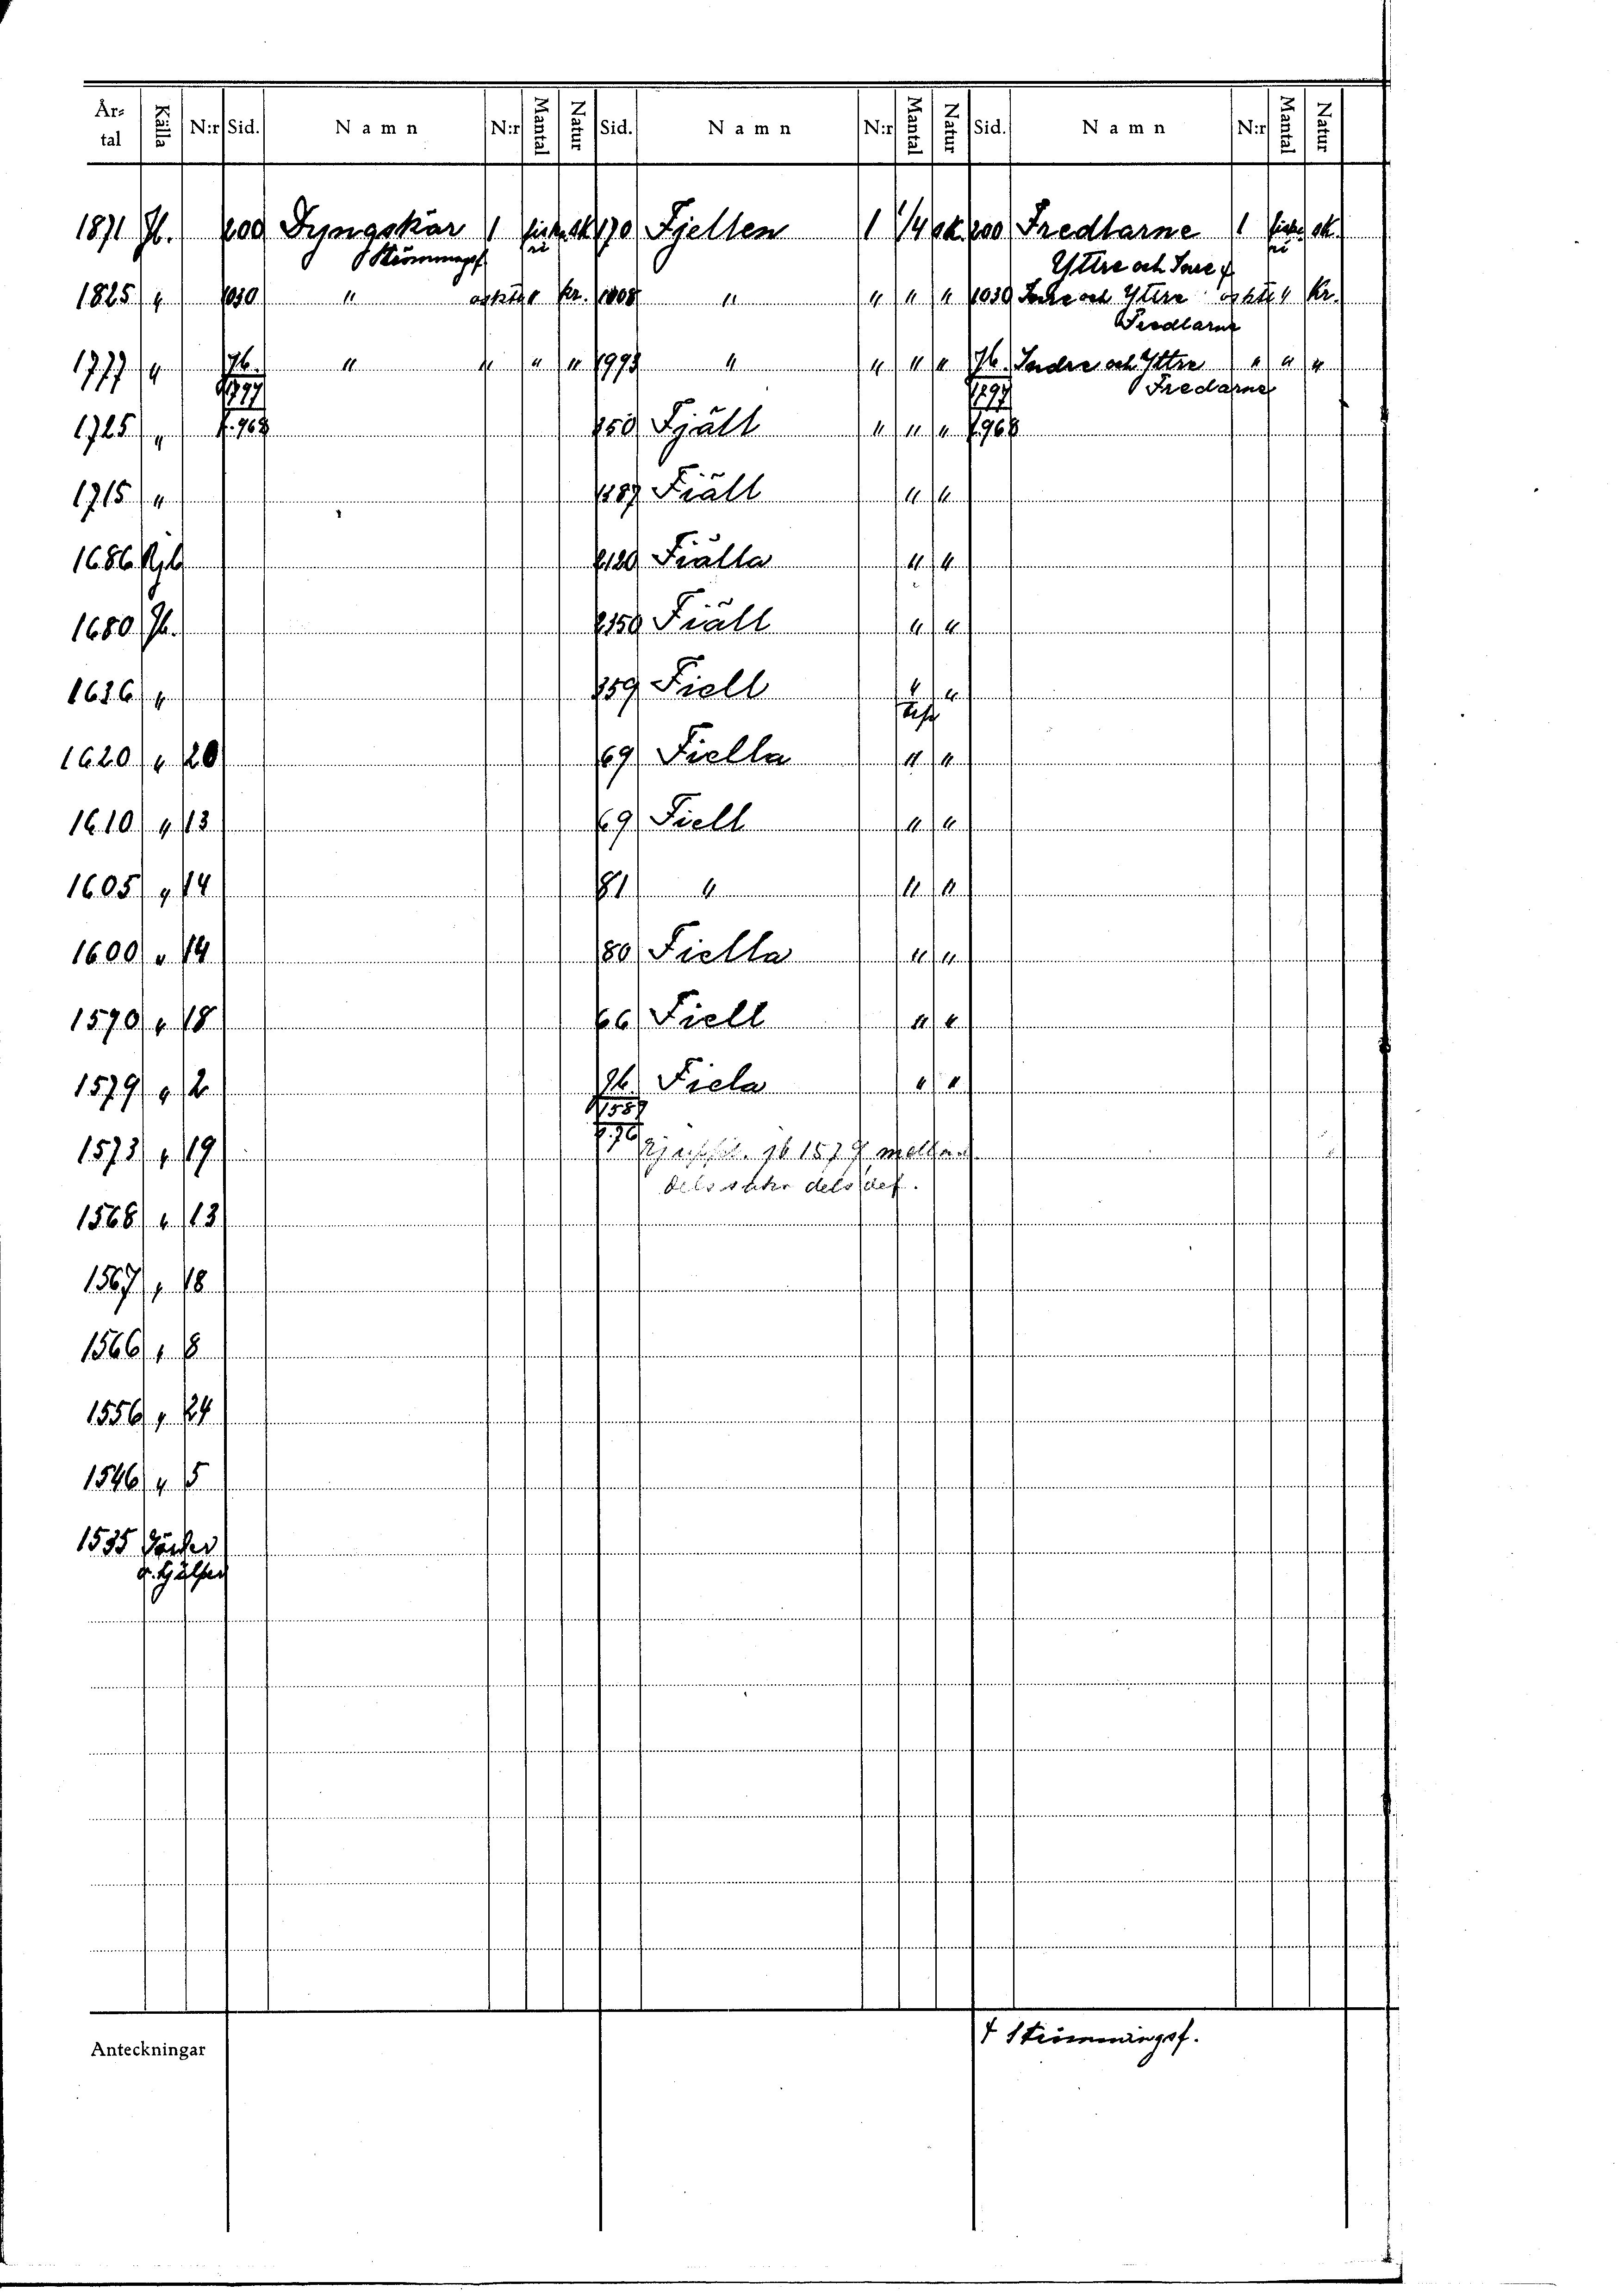 År-tal Källa N:r Sid. Namn N:r Mantal Natur Sid. Namn N:r Mantal Natur Sid. Namn N:r Mantal Natur
1871 Jb. 200 Dyngskär 1 fiske sk 170 Fjellen 1 1/4 sk. 200 Fredlarne 1 fiske sk.
Strömmingsf. ri Yttre och Inre + ri
1825 " 1030 " oskts " kr. 1008 " " " " 1030 Inre och Yttre oskts " Kr.
Fredlarne
1777 " Jb. " " " " 1993 " " " " Jb. Indre och Yttre " " "
1797 1797 Fredarne
1725 " s. 968 350 Fjäll " " " s. 968
1715 " 1387 Fiäll " "
1686 Rjb 2120 Fiälla " "
1680 Jb. 2350 Fiäll " "
1636 " 359 Fiell " "
1620 " 20 69 Fiella " "
1610 " 13 69 Fiell " "
1605 " 14 81 " " "
1600 " 14 80 Fiella " "
1590 " 18 66 Fiell " "
1579 " 2 Jb. Fiela " "
1587
1573 " 19 s. 76 Ej uppt. jb 1579, mellan
dels dels def.
1568 " 13
1567 " 18
1566 " 8
1556 " 24
1546 " 5
1535 Gärder
o. hjälper
Anteckningar + Strömmingsf.